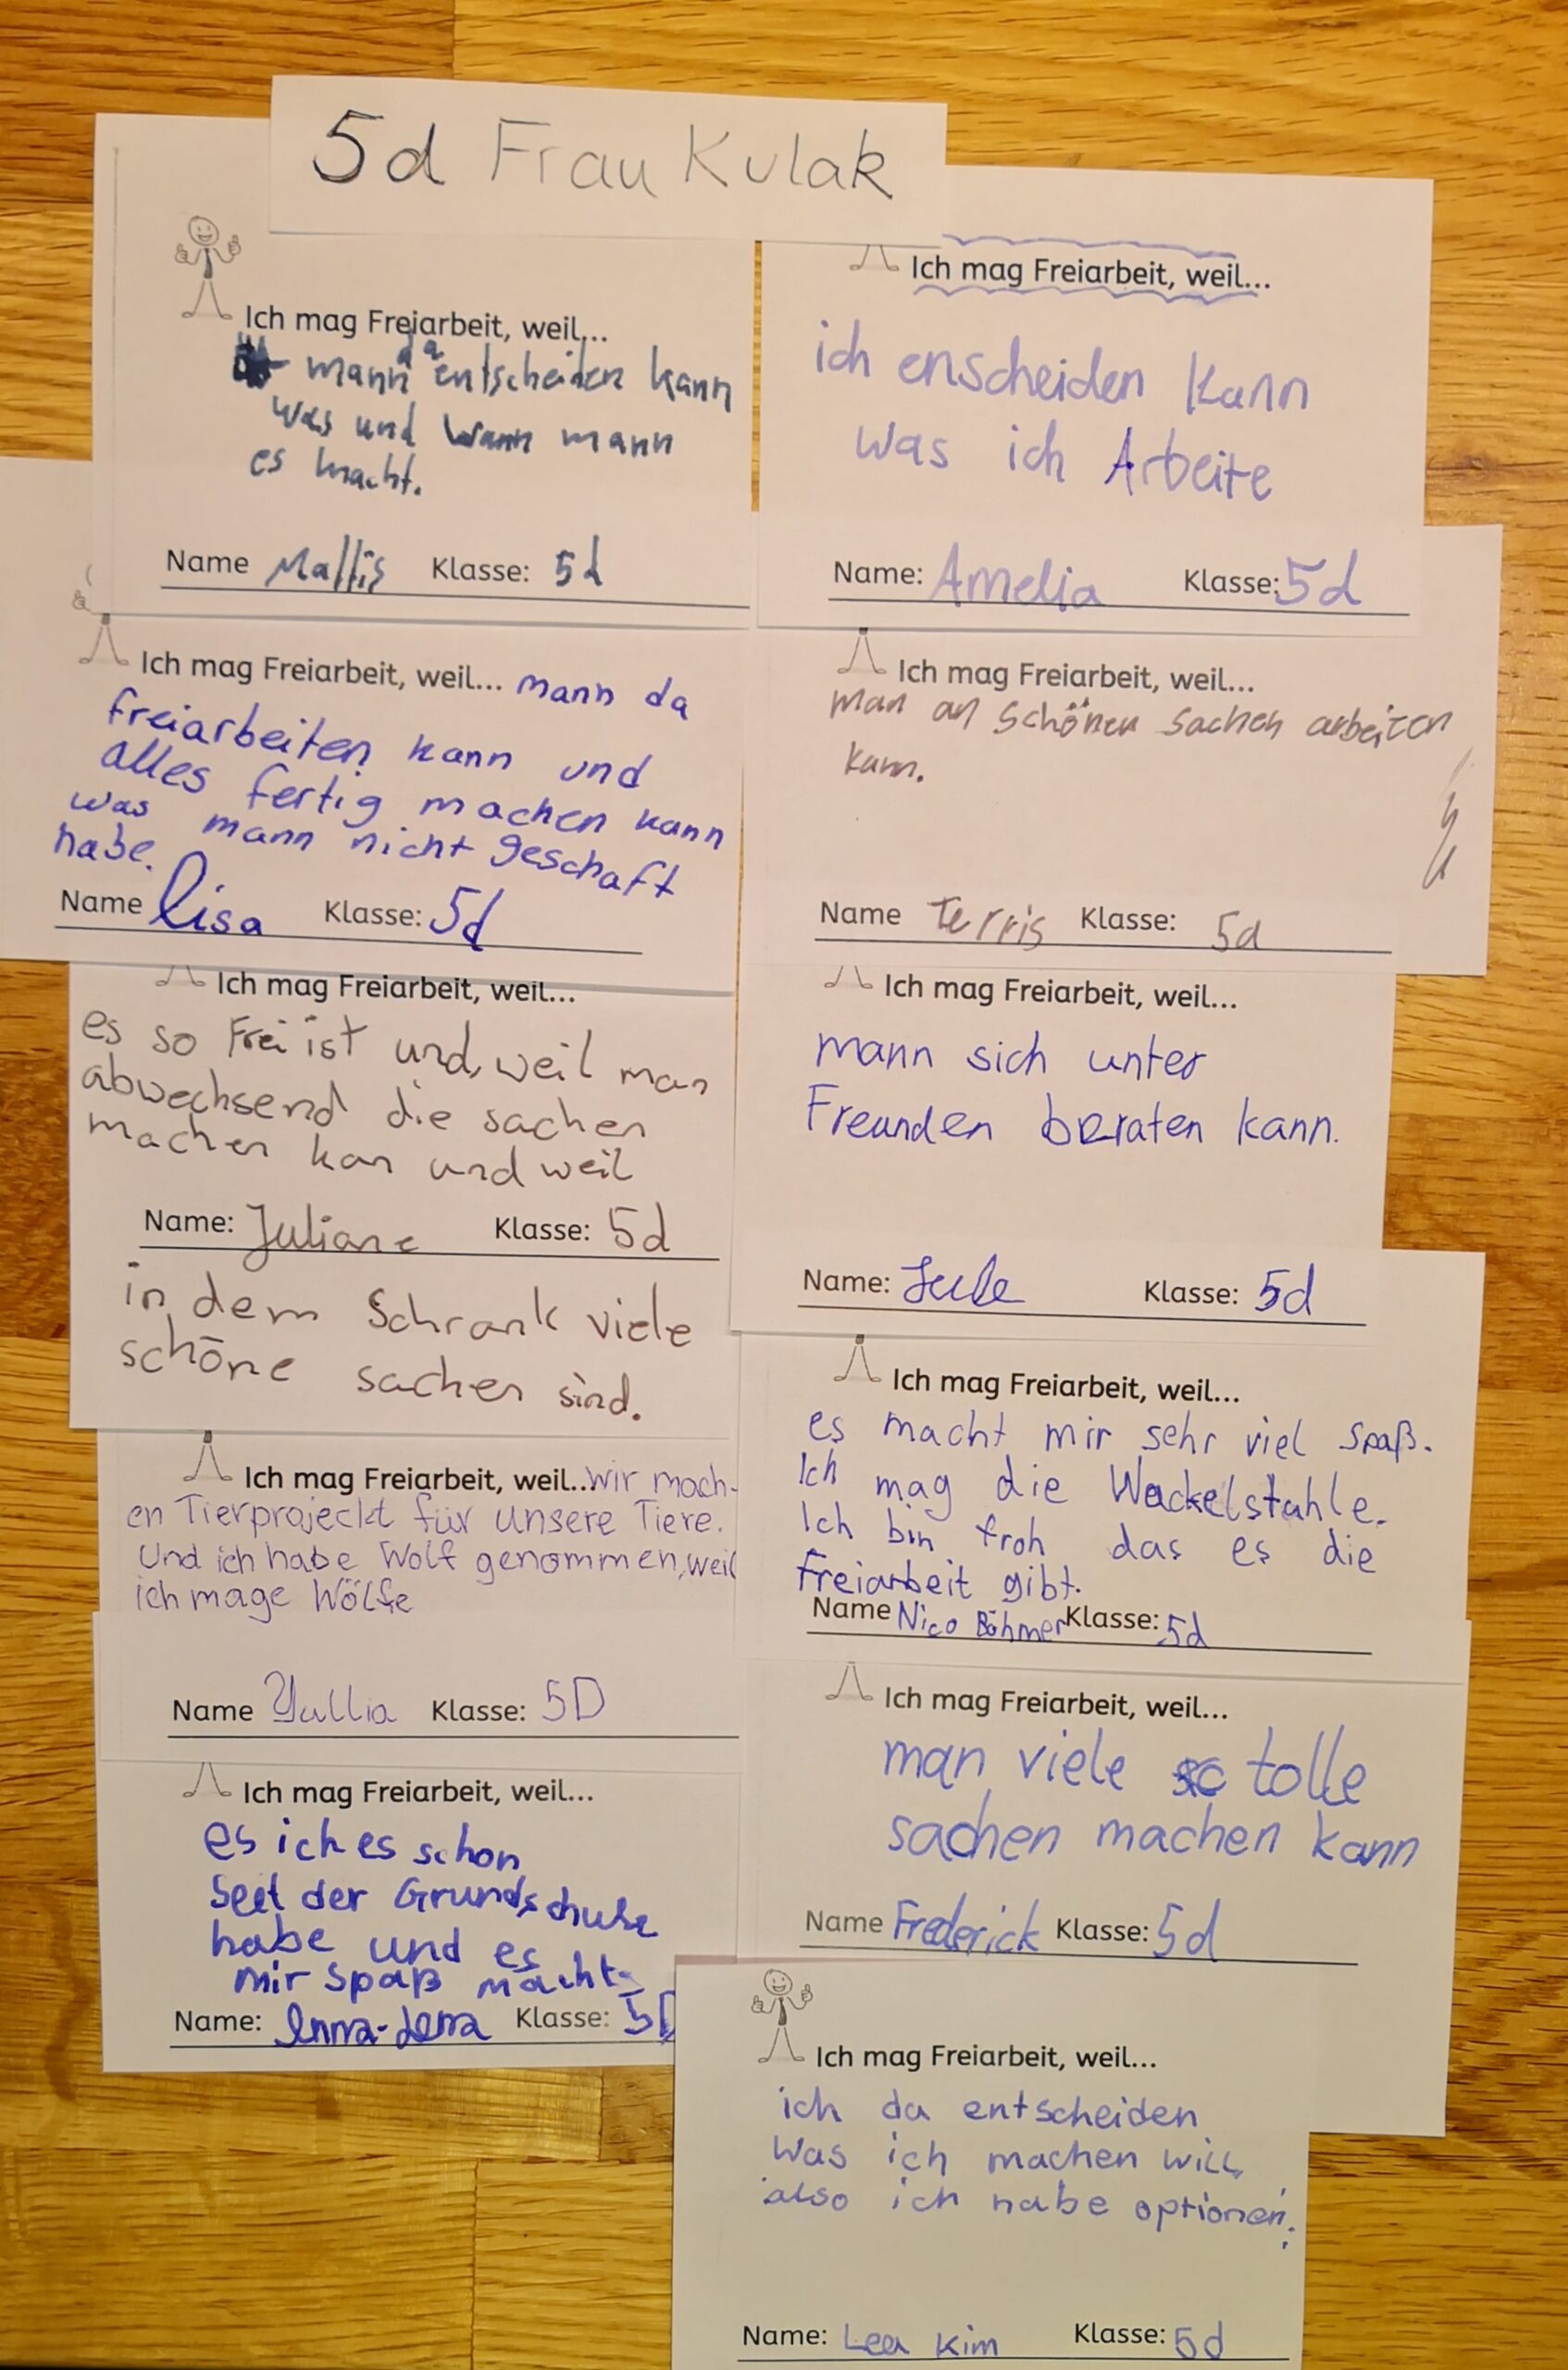 5d Frau Kulak
Ich mag Freiarbeit, weil...
da
mann entscheiden kann
was und wann mann
es macht.
Name Klasse: 5d
Ich mag Freiarbeit, weil...
ich enscheiden kann
was ich Arbeite
Name: Amelia Klasse: 5d
Ich mag Freiarbeit, weil... mann da
freiarbeiten kann und
alles fertig machen kann
was mann nicht geschaft
habe.
Name Lisa Klasse: 5d
Ich mag Freiarbeit, weil...
man an schönen sachen arbeiten
kann.
Name Terris Klasse: 5d
Ich mag Freiarbeit, weil...
es so Frei ist und, weil man
abwechsend die sachen
machen kan und weil
Name: Juliane Klasse: 5d
in dem Schrank viele
schöne sachen sind.
Ich mag Freiarbeit, weil...
mann sich unter
Freunden beraten kann.
Name: Jule Klasse: 5d
Ich mag Freiarbeit, weil...
es macht mir sehr viel Spaß.
Ich mag die Wackelstühle.
Ich bin froh das es die
Freiarbeit gibt.
Name Nico Böhmer Klasse: 5d
Ich mag Freiarbeit, weil... wir mach-
en Tierprojeckt für unsere Tiere.
Und ich habe Wolf genommen, weil
ich mage Wölfe
Name Yullia Klasse: 5D
Ich mag Freiarbeit, weil...
man viele tolle
sachen machen kann
Name Frederick Klasse: 5d
Ich mag Freiarbeit, weil...
es ich es schon
seit der Grundschule
habe und es
mir spaß macht.
Name: Anna-Lena Klasse: 5D
Ich mag Freiarbeit, weil...
ich da entscheiden
was ich machen will,
also ich habe optionen.
Name: Lea Kim Klasse: 5d